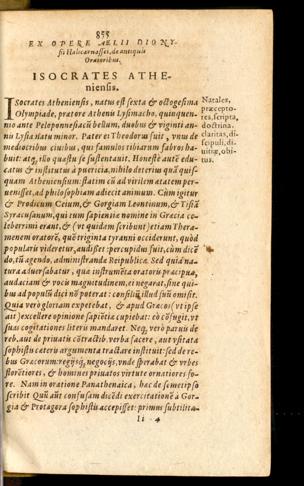 855
EX OPERE AELII DIONY-
sii Halicarnassei, de antiquis
Oratoribus.
ISOCRATES ATHE-
niensis.
Isocrates Atheniensis, natus est sexta & octogesima
Olympiade, prætore Athenis Lysimacho, quinquen-
nio ante Peloponnesiacū bellum, duobus & viginti an-
nis Lysia natu minor. Pater ei Theodorus fuit, vnus de
mediocribus ciuibus, qui famulos tibiarum fabros ha-
buit: atq, illo quæstu se sustentauit. Honestè autē edu-
catus & institutus à puericia, nihilo deterius quā quis-
quam Atheniensium: statim cū ad virilem ætatem per-
uenisset, ad philosophiam adiecit animum. Cùm igitur
& Prodicum Ceium, & Gorgiam Leontinum, & Tisiā
Syracusanum, qui tum sapientiæ nomine in Græcia ce-
leberrimi erant, & (vt quidam scribunt) etiam Thera-
menem oratorē, quē triginta tyranni occiderunt, quòd
popularis videretur, audisset: perpudisi fuit, cùm dicē
do, tū agendo, administrandæ Reipublicæ. Sed quia na-
tura aduersabatur, quæ instrumēta oratoris præcipua,
audaciam & vocis magnitudinem, ei negarat, sine qui-
bus ad populū dici nō poterat: consiliū illud suū omisit.
Quia verò gloriam expetebat, & apud Græcos (vt ipse
ait) excellere opinione sapiētiæ cupiebat: eò cōfugit, vt
suas cogitationes literis mandaret. Neq, verò paruis de
reb, aut de priuatis cōtractib. verba facere, aut vsitata
sophistis cæteris argumenta tractare instituit: sed de re-
bus Græcorum: regijsq, negocijs, vnde sperabat & vrbes
florētiores, & homines priuatos virtute ornatiores fo-
re. Nam in oratione Panathenaica, hæc de semetipso
scribit Quū aūt confusam dicēdi exercitationē à Gor-
gia & Protagora sophistis accepisset: primus subtilita-
Ii 4
Natales,
præcepto-
res, scripta,
doctrina,
claritas, di-
scipuli, di-
uitiæ, obi-
tus.